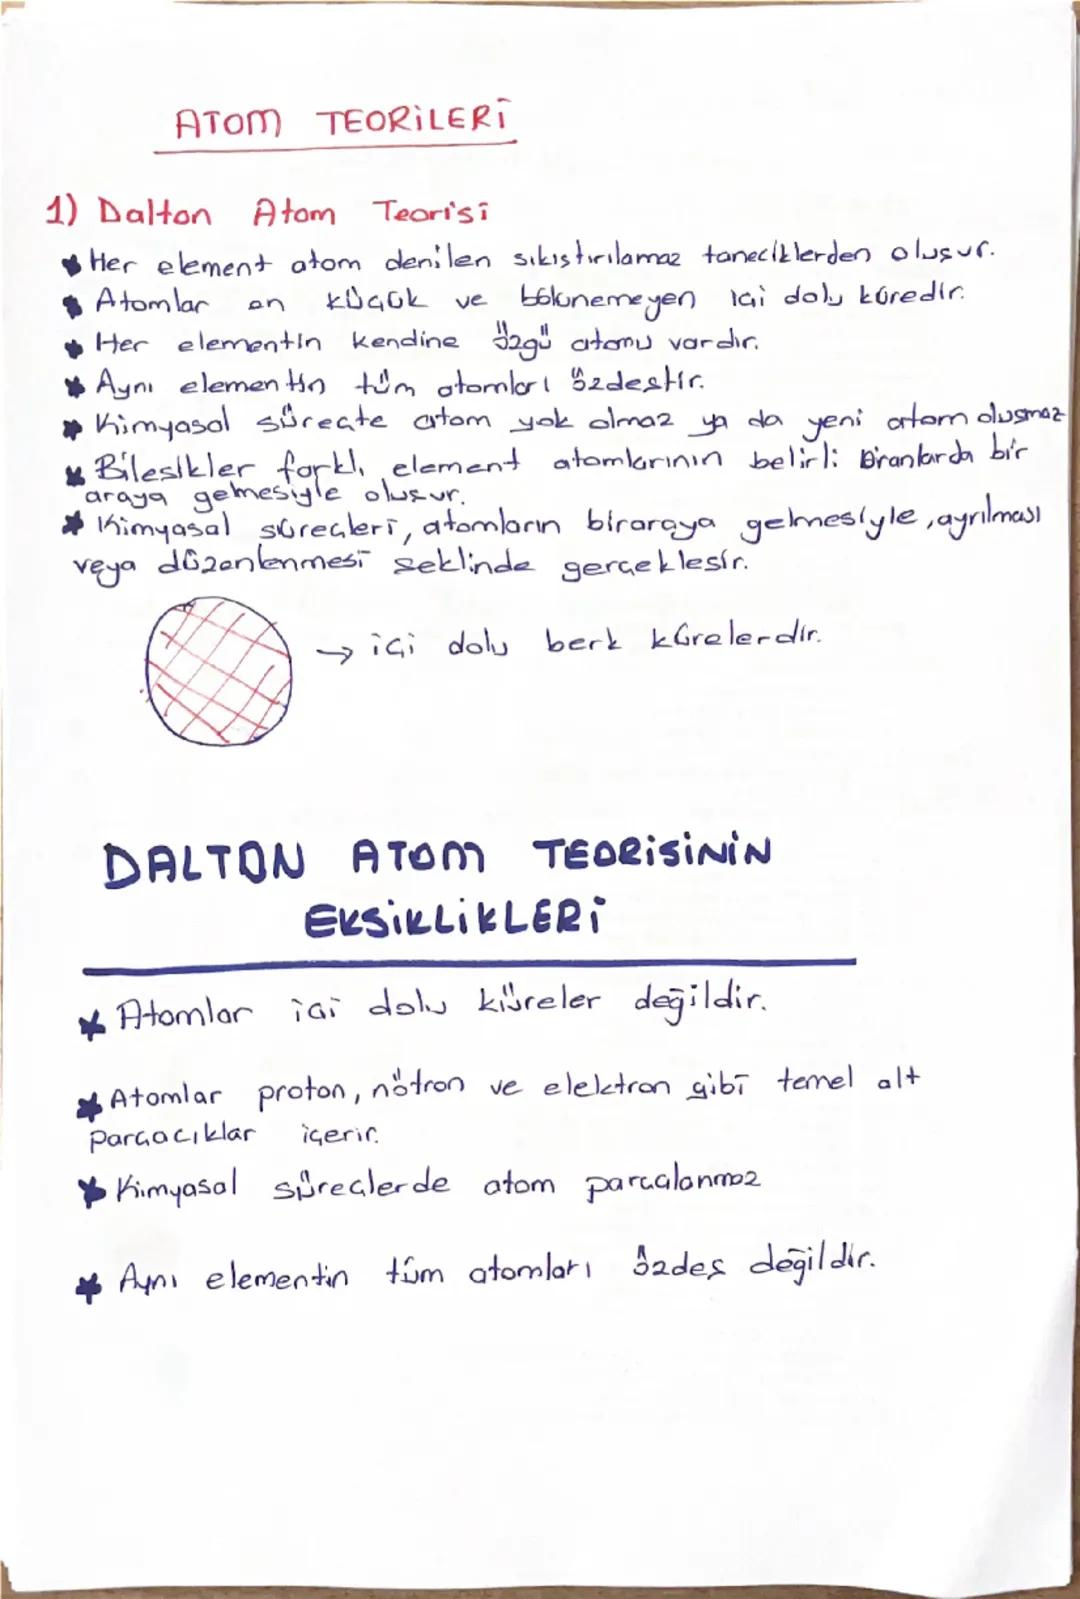 ATOM TEORİLERİ
1) Dalton Atom Teorisi
* Her element atom denilen sıkıştırılamaz taneciklerden oluşur.
* Atomlar en küçük ve bölünemeyen içi dolu küredir.
* Her elementin kendine özgü atomu vardır.
* Aynı elementin tüm atomları özdeştir.
* Kimyasal süreçte atom yok olmaz ya da yeni atom oluşmaz
* Bileşikler farklı element atomlarının belirli oranlarda bir
araya gelmesiyle oluşur.
* Kimyasal süreçleri, atomların biraraya gelmesiyle, ayrılması
veya düzenlenmesi şeklinde gerçekleşir.
→ içi dolu berk kürelerdir.
DALTON ATOM TEORİSİNİN
EKSİKLİKLERİ
* Atomlar içi dolu küreler değildir.
* Atomlar proton, nötron ve elektron gibi temel alt
parçacıklar içerir.
* Kimyasal süreçlerde atom parçalanmaz
* Aynı elementin tüm atomları özdeş değildir.